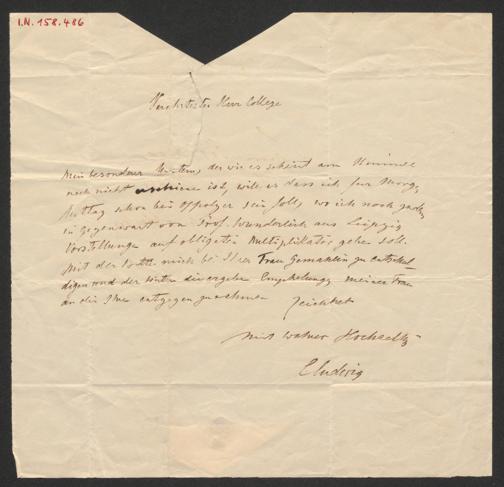 I.N. 158.486
Verehrtester Herr College
Mein besonderer der wie es scheint am Himmel
noch nicht erschienen ist, will es dass ich für Morgen
Mittag schon bei Oppolzer sein soll, wo ich noch
in Gegenwart von Prof. Wunderlich aus Leipzig
Vorstellungen auf obligaten Multiplikator geben soll.
Mit der Bitte mich bei Ihrer Frau Gemahlin zu entschul
digen und der die ergebene Empfehlung meiner Frau
an die Ihre entgegen zu nehmen zeichnet
mit wahrer Hochachtg
CLudwig